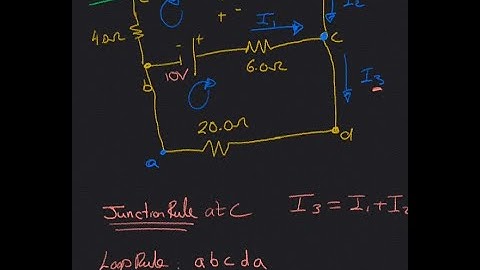 + -
I₁
I₂
4.0Ω
- +
C
10V
6.0Ω
b
I₃
20.0Ω
d
a
Junction Rule at C
I₃ = I₁ + I₂
Loop Rule: a b c d a